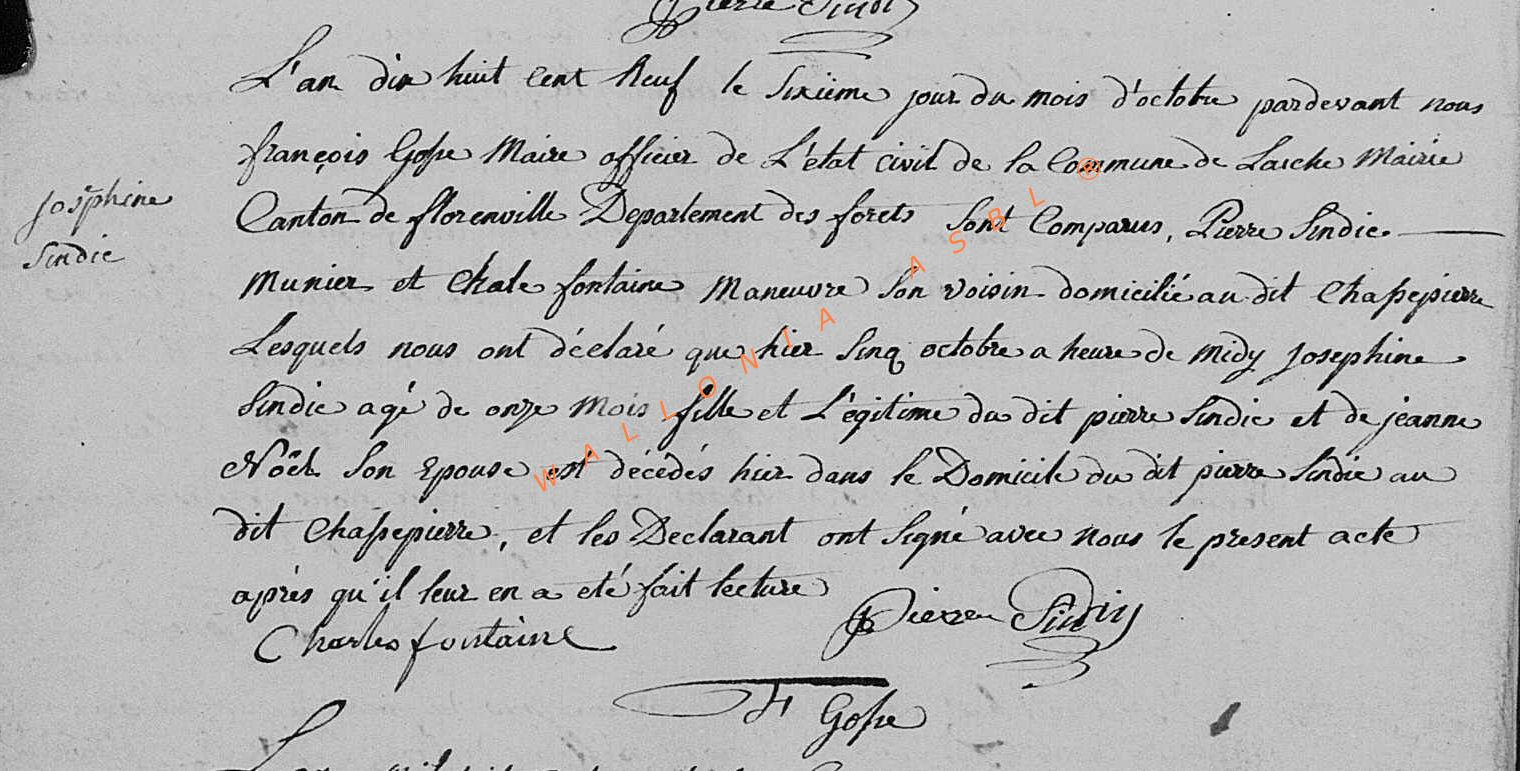 Pierre Sindiy
L'an dix huit cent Neuf le sixiême jour du mois d'octobre pardevant nous
françois Gosse Maire officier de L'état civil de la Commune de Lasche Mairie
Josephine
Canton de florenville Departement des forets sont Comparus, Pierre Sindic
Sindic
Munier et Chale fontaine Maneuvre son voisin domicilié au dit Chassepierre
Lesquels nous ont déclaré que hier sinq octobre a heure de Midy Josephine
Sindic agé de onze Mois fille et L'égitime du dit pierre Sindic et de jeanne
Noël son Epouse est décédés hier dans le Domicile du dit pierre Sindic au
dit Chassepierre, et les Declarant ont signé avec nous le present acte
après qu'il leur en a eté fait lecture
Charles fontaine
Pierre Sindiy
F Gosse
WALLONIA ASBL ®